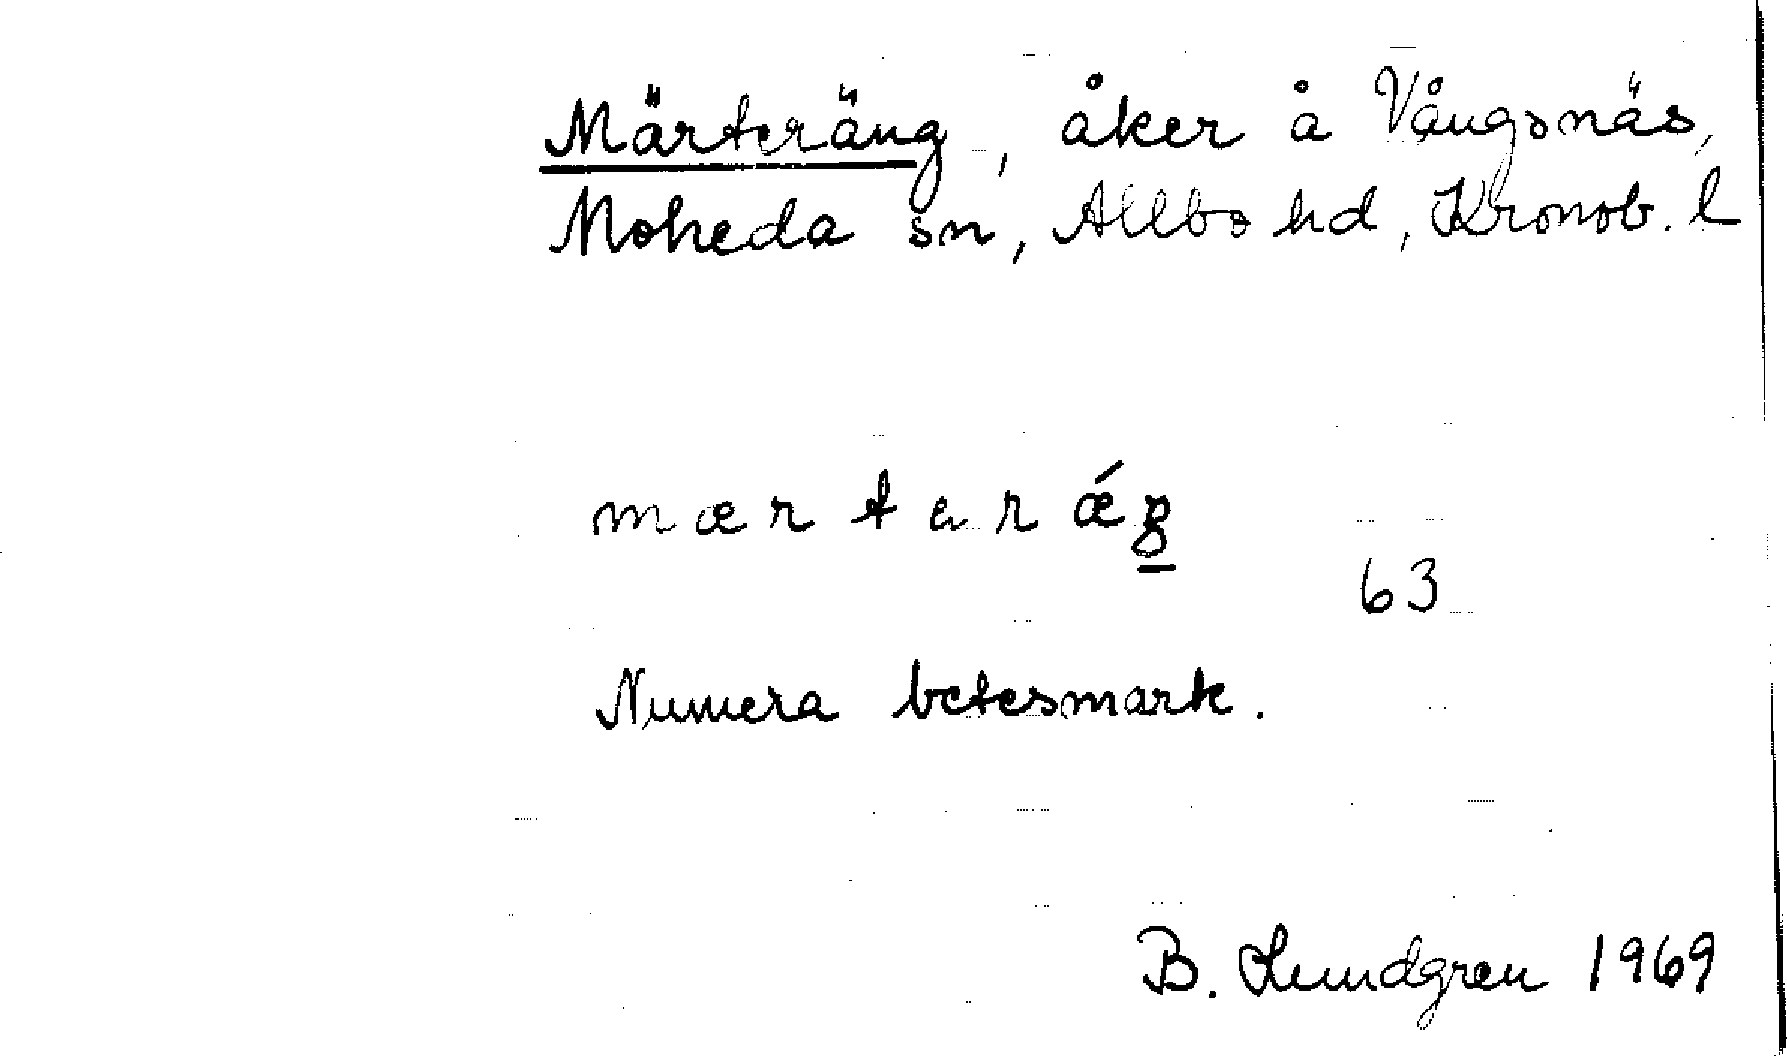 Märteräng, åker å Vångsnäs,
Moheda sn, Allbo hd, Kronob. l
mærterǽŋ
63
Numera betesmark.
B. Lundgren 1969